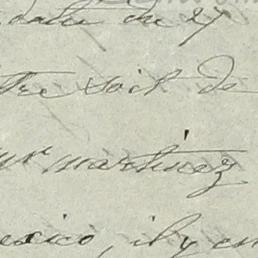 date du 27
tre soit de
ur martinez
exico, il y en